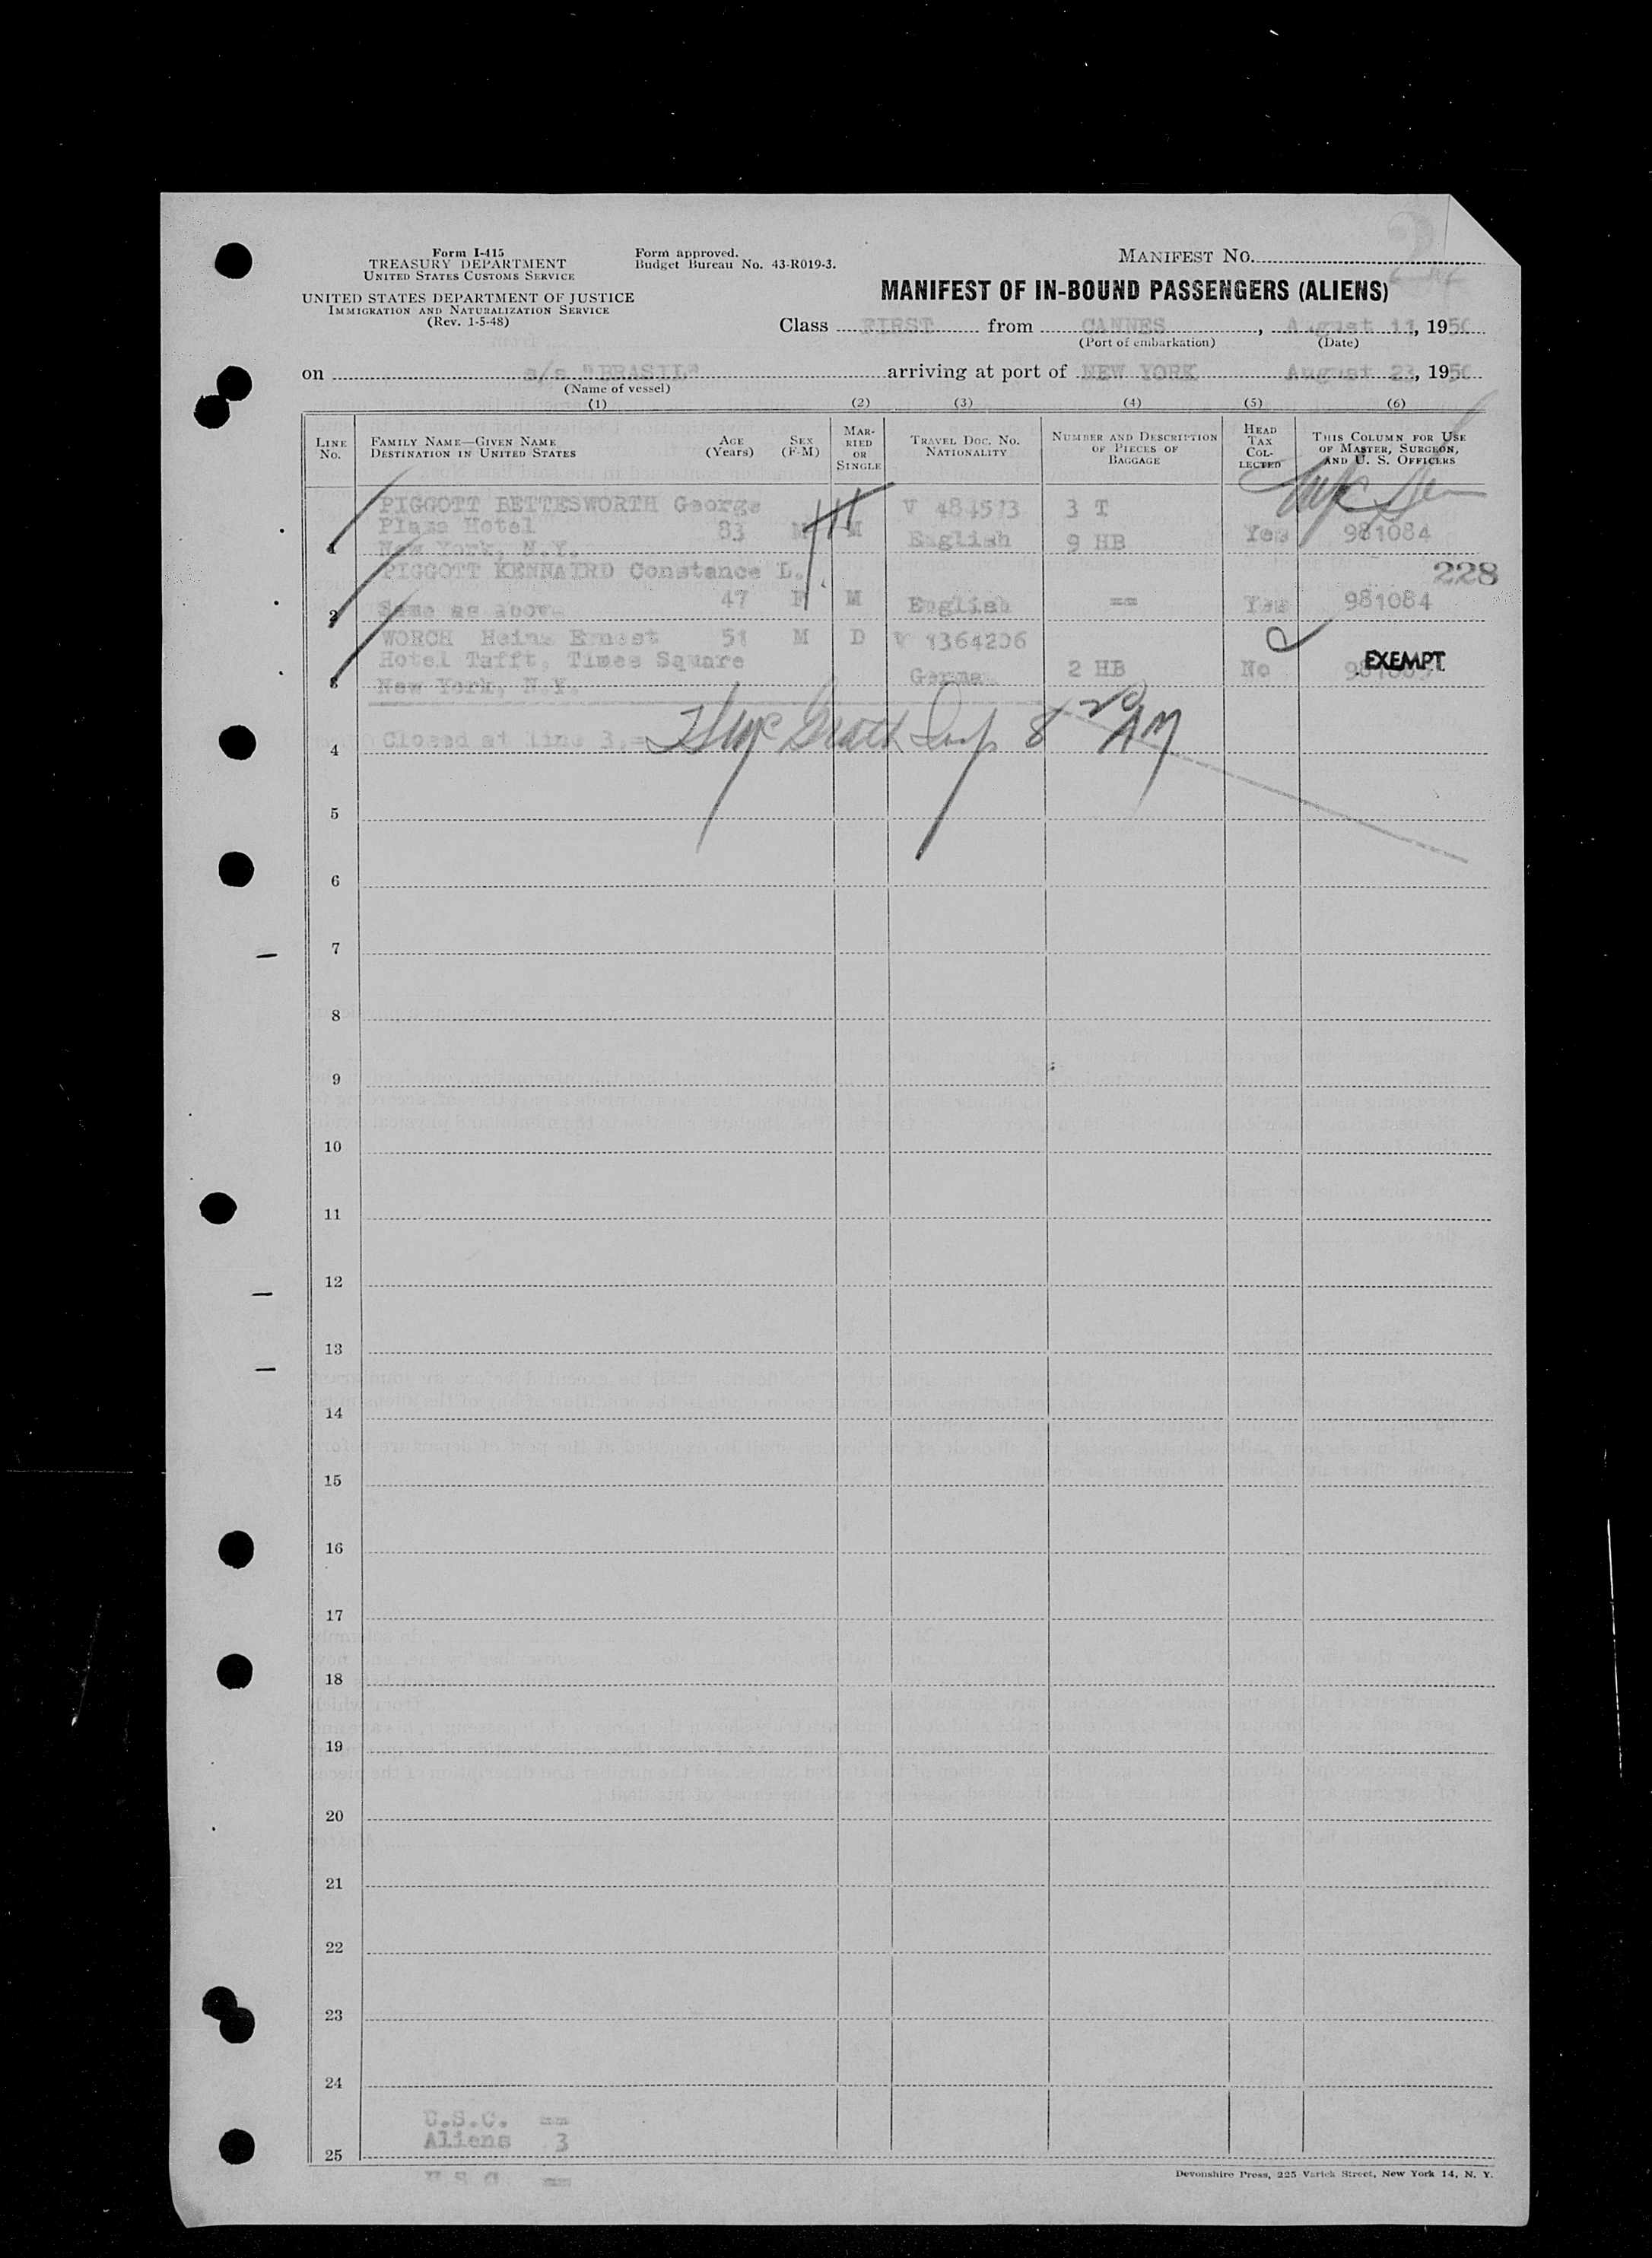 Form I-415
TREASURY DEPARTMENT
UNITED STATES CUSTOMS SERVICE
UNITED STATES DEPARTMENT OF JUSTICE
IMMIGRATION AND NATURALIZATION SERVICE
(Rev. 1-5-48)
Form approved.
Budget Bureau No. 43-R019-3.
MANIFEST NO.
MANIFEST OF IN-BOUND PASSENGERS (ALIENS)
Class FIRST from CANNES, August 11, 1950
(Port of embarkation) (Date)
on s/s "BRASIL" arriving at port of NEW YORK August 23, 1950
(Name of vessel)
(1) (2) (3) (4) (5) (6)
LINE No.
FAMILY NAME—GIVEN NAME
DESTINATION IN UNITED STATES
AGE (Years)
SEX (F-M)
MARRIED OR SINGLE
TRAVEL DOC. NO.
NATIONALITY
NUMBER AND DESCRIPTION OF PIECES OF BAGGAGE
HEAD TAX COLLECTED
THIS COLUMN FOR USE OF MASTER, SURGEON, AND U. S. OFFICERS
PIGGOTT BETTESWORTH George V 484573 3 T
Plaza Hotel 83 M M English 9 HB Yes 981084
1 New York, N.Y.
PIGGOTT KENNAIRD Constance L. 228
2 Same as above 47 F M English == Yes 981084
WORCH Heinz Ernest 51 M D V 1364206
Hotel Tafft, Times Square German 2 HB No EXEMPT
3 New York, N.Y.
4 Closed at line 3.= 8 20 AM
5
6
7
8
9
10
11
12
13
14
15
16
17
18
19
20
21
22
23
24
U.S.C. ==
Aliens 3
25
U S C ==
Devonshire Press, 225 Varick Street, New York 14, N. Y.